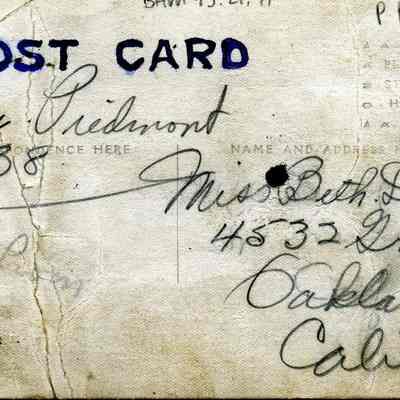 OST CARD
Piedmont
ONDENCE HERE
NAME AND ADDRESS H
38
Miss Beth D
4532 G
Oakla
Cali